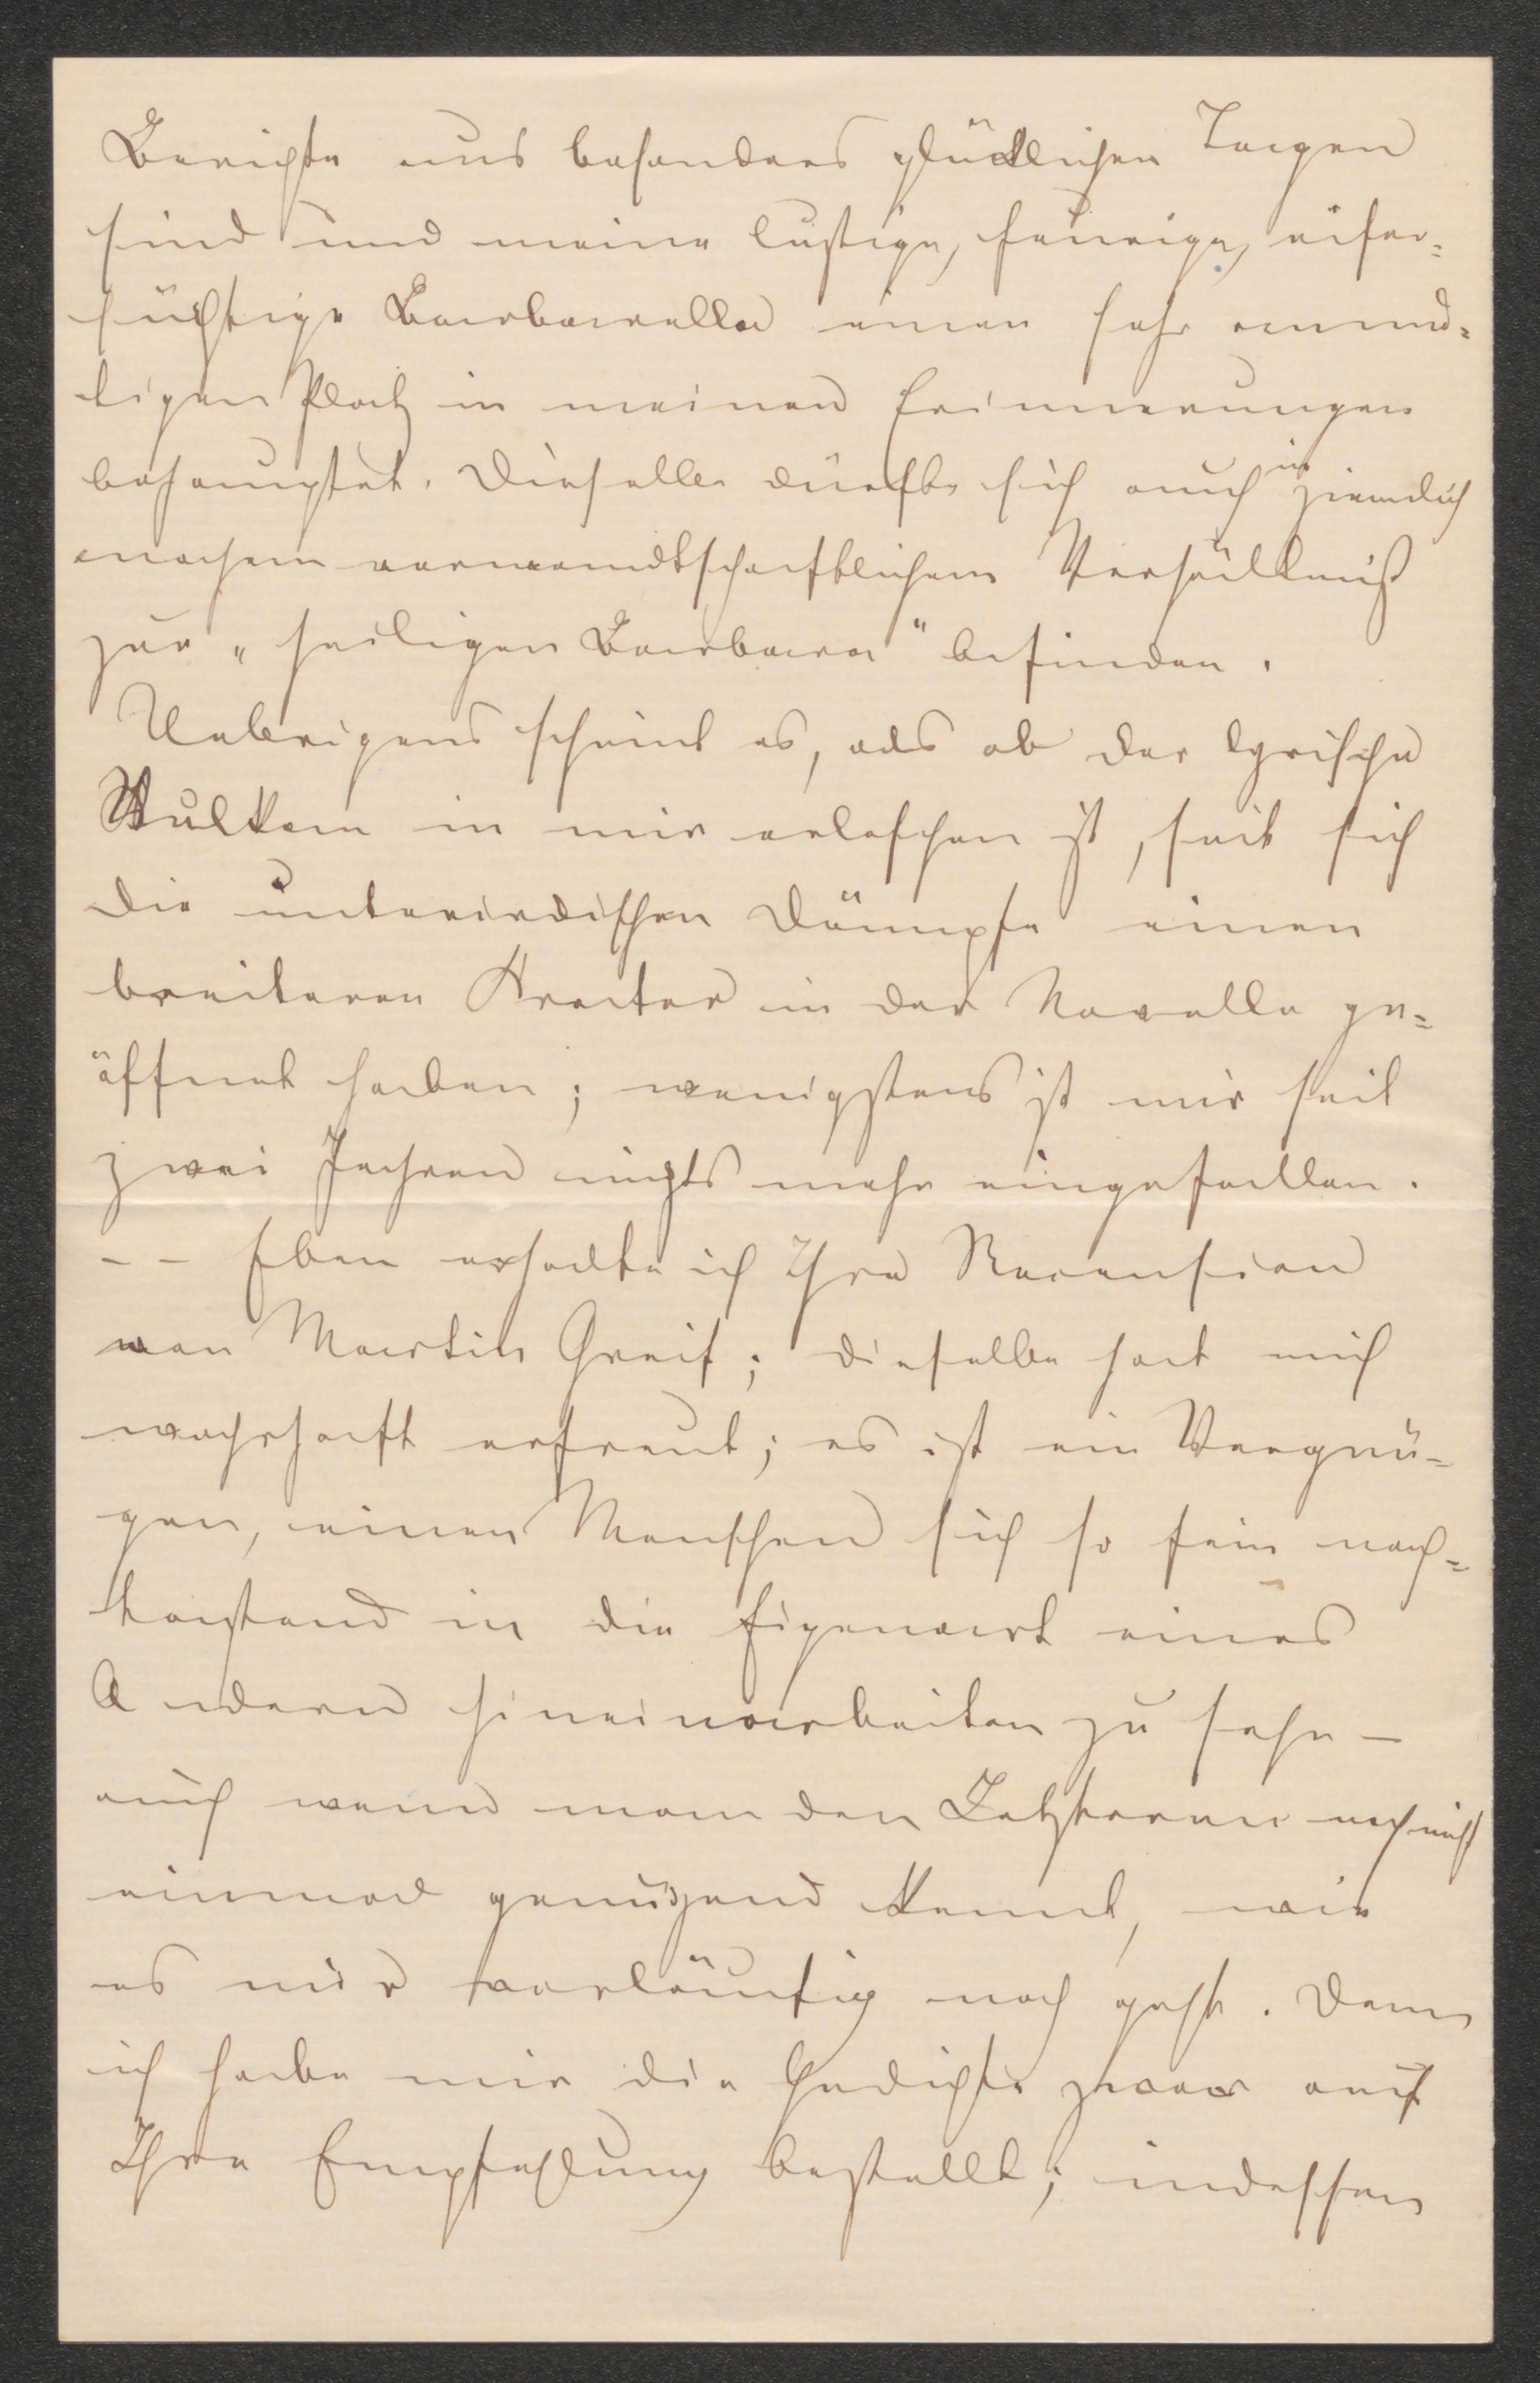 Berichte aus besonders glücklichen Tagen
sind und meine lustige, feurige, eifer=
süchtige Barbarella einen sehr anmu=
tigen Platz in meinen Erinnerungen
behauptet. Dieselbe dürfte sich auch in ziemlich
nahem verwandtschaftlichem Verhältniß
zur „heiligen Barbara" befinden.
Uebrigens scheint es, als ob der lyrische
Vulkan in mir erloschen ist, seit sich
die unterirdischen Dämpfe einen
breiteren Krater in der Novelle ge=
öffnet haben; wenigstens ist mir seit
zwei Jahren nichts mehr eingefallen.
– – Eben erhalte ich Ihre Recension
von Martin Greif; dieselbe hat mich
wahrhaft erfreut; es ist ein Vergnü=
gen, einen Menschen sich so fein nach=
tastend in die Eigenart eines
Andern hineinarbeiten zu sehn –
auch wenn man den Letzteren noch nicht
einmal genügend kennt, wie
es mir vorläufig noch geht. Denn
ich habe mir die Gedichte zwar auf
Ihre Empfehlung bestellt; indessen